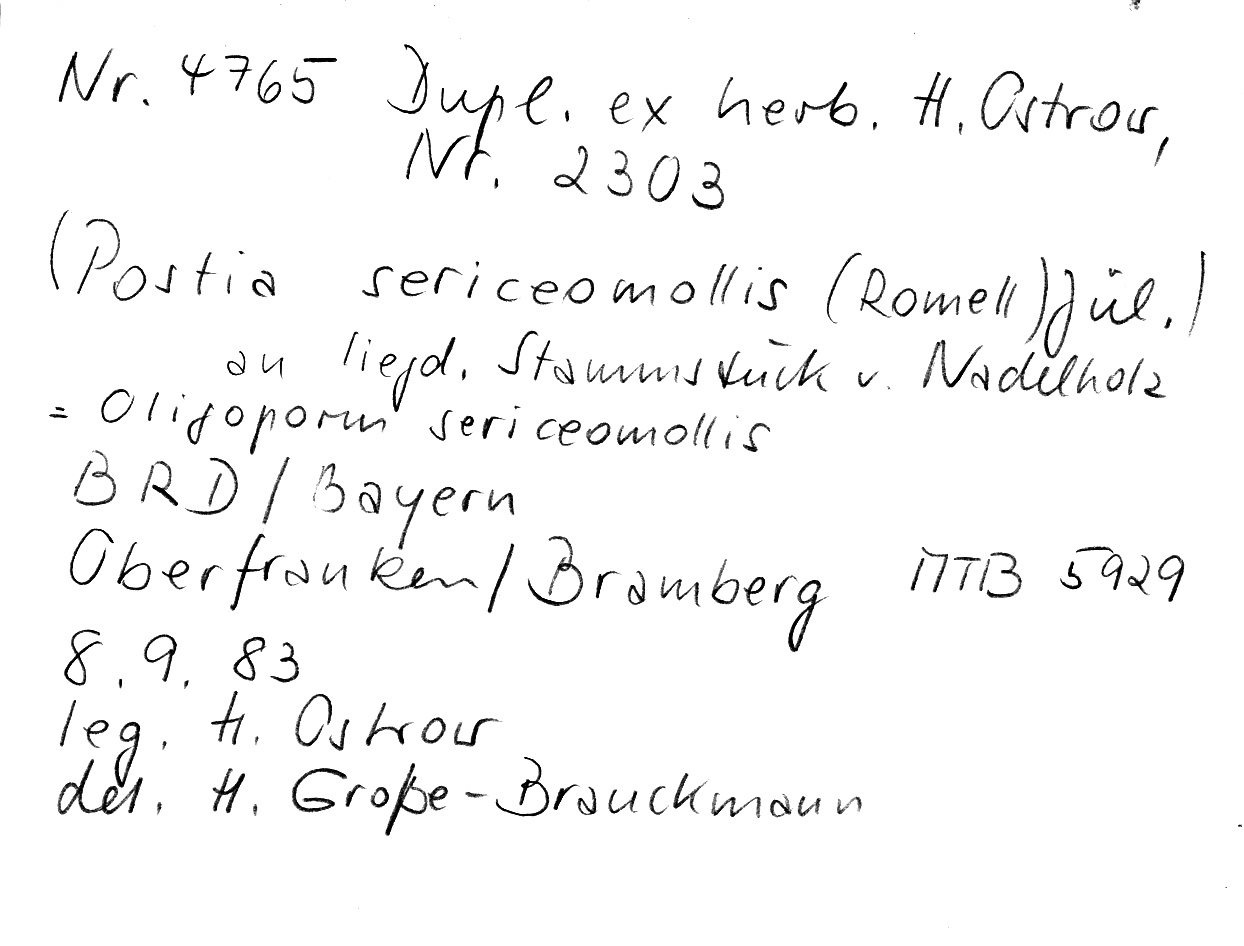 Nr. 4765 Dupl. ex herb. H. Ostrow,
Nr. 2303
(Postia sericeomollis (Romell) Jül.)
an liegd. Stammstück v. Nadelholz
= Oligoporus sericeomollis
BRD / Bayern
Oberfranken / Bramberg MTB 5929
8. 9. 83
leg. H. Ostrow
det. H. Große-Brauckmann